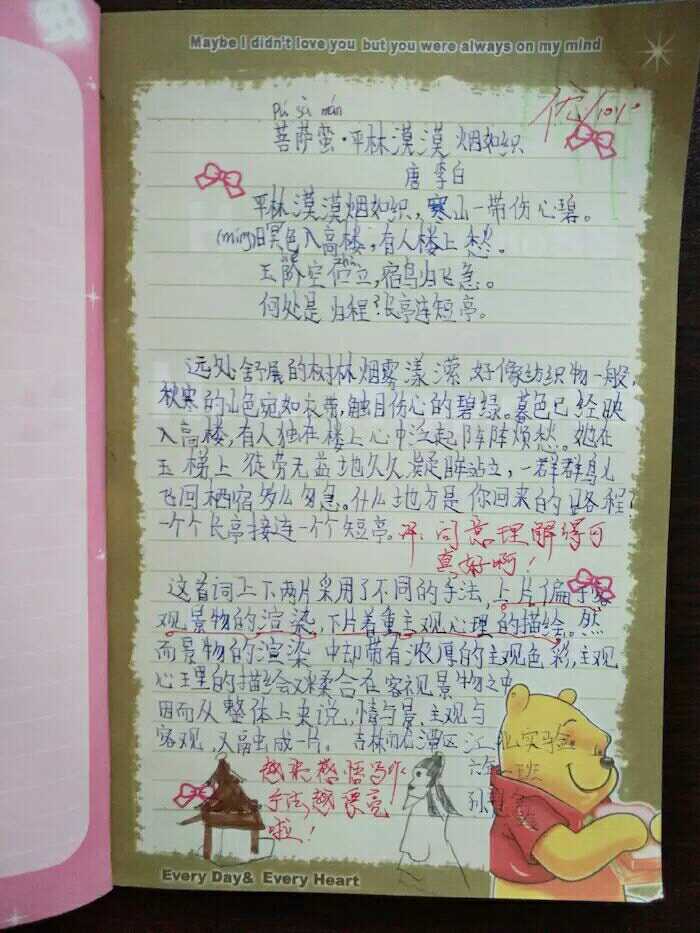 Maybe I didn't love you but you were always on my mind
优 10/10
Pú sà mán
菩萨蛮·平林漠漠烟如织
唐 李白
平林漠漠烟如织，寒山一带伤心碧。
(míng)暝色入高楼，有人楼上愁。
玉阶空伫立，宿鸟归飞急。
何处是归程？长亭连短亭。
远处舒展的树林烟雾漾潆 好像纺织物一般，
秋寒的山色宛如衣带，触目伤心的碧绿。暮色已经映
入高楼，有人独在楼上心中泛起阵阵烦愁。她在
玉梯上徒劳无益地久久凝眸站立，一群群鸟儿
飞回栖宿多么匆急。什么地方是你回来的路程？
一个个长亭接连一个个短亭。
词意理解得可
真好啊！
这首词上下两片采用了不同的手法，上片偏于客
观景物的渲染，下片着重主观心理的描绘。然
而景物的渲染中却带有浓厚的主观色彩，主观
心理的描绘又糅合在客观景物之中
因而从整体上来说，情与景、主观与
客观，又融成一片。 吉林市龙潭区江北实验
六年一班
孙
越来越
越漂亮
啦！
Every Day& Every Heart